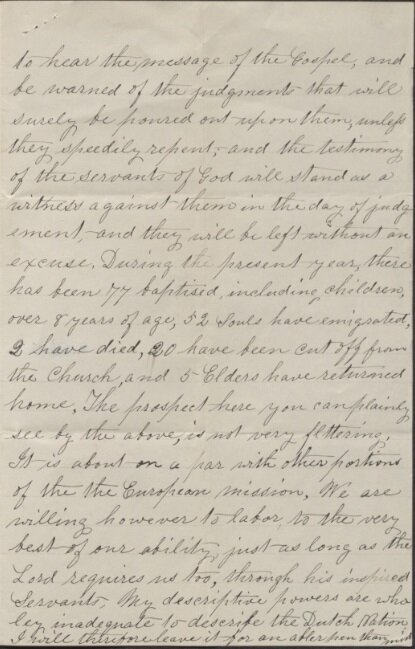 to hear the message of the Gospel, and
be warned of the judgments that will
surely be poured out upon them, unless
they speedily repent, and the testimony
of the servants of God will stand as a
witness against them in the day of judg
ement, and they will be left without an
excuse. During the present year, there
has been 77 baptised, including children,
over 8 years of age, 52 Souls have emigrated,
2 have died, 20 have been cut off from
the Church, and 5 Elders have returned
home. The prospect here you can plainly
see by the above, is not very flttering.
It is about on a par with other portions
of the the European mission. We are
willing however to labor, to the very
best of our ability, just as long as the
Lord requires us too, through his inspired
Servants. My descriptive powers are who
ley inadequate to describe the Dutch Nation
I will therefore leave it for an abler pen than mine